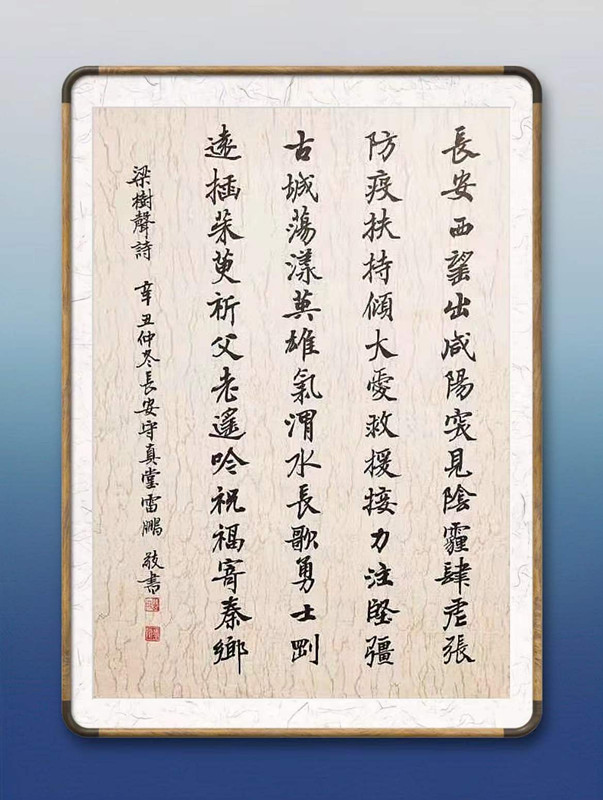 長安西望出咸陽突見陰霾肆虐張
防疫扶持傾大愛救援接力注堅彊
古城蕩漾英雄氣渭水長歌勇士剛
遠插茱萸祈父老遥吟祝福寄秦鄉
梁樹聲詩 辛丑仲冬長安守真堂雷鵬 敬書